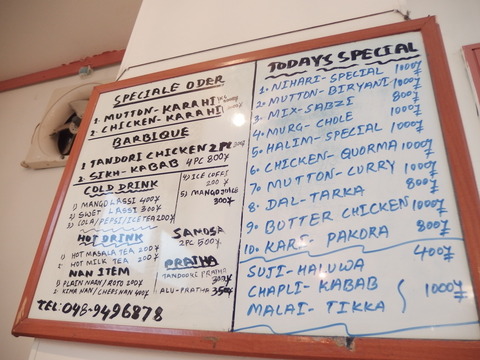 SPECIALE ODER
1. MUTTON-KARAHI
2. CHICKEN-KARAHI
BARBIQUE
1 TANDORI CHICKEN 2PC
2. SIKH-KABAB 4PC 800¥
COLD DRINK
1) MANGO LASSI 400¥
2) SWET LASSI 300¥
3) COLA/PEPSI/ICETEA 200¥
4) ICE COFFI 200 ¥
5) MANGO JUICE 300¥
HOT DRINK
1) HOT MASALA TEA 200¥
2) HOT MILK TEA 200 ¥
NAN ITEM
1) PLAIN NAN/ROTO 200¥
2) KIMA NAN/CHEES NAN 400¥
SAMOSA
2PC 500¥
PRATHA
TANDOORI PRATHA 300¥
ALU-PRATHA 350¥
TEL: 048-9496878
TODAYS SPECIAL
1. NIHARI-SPECIAL 1000¥
2. MUTTON-BIRYANI 1000¥
3. MIX-SABZI 800¥
4. MURG-CHOLE 1000¥
5. HALIM-SPECIAL 1000¥
6. CHICKEN-QUORMA 1000¥
7. MUTTON-CURRY 1000¥
8. DAL-TARKA 800¥
9. BOTTER CHICKEN 1000¥
10. KARI-PAKORA 800¥
SUJI-HALUWA 400¥
CHAPLI-KABAB
MALAI-TIKKA 1000¥